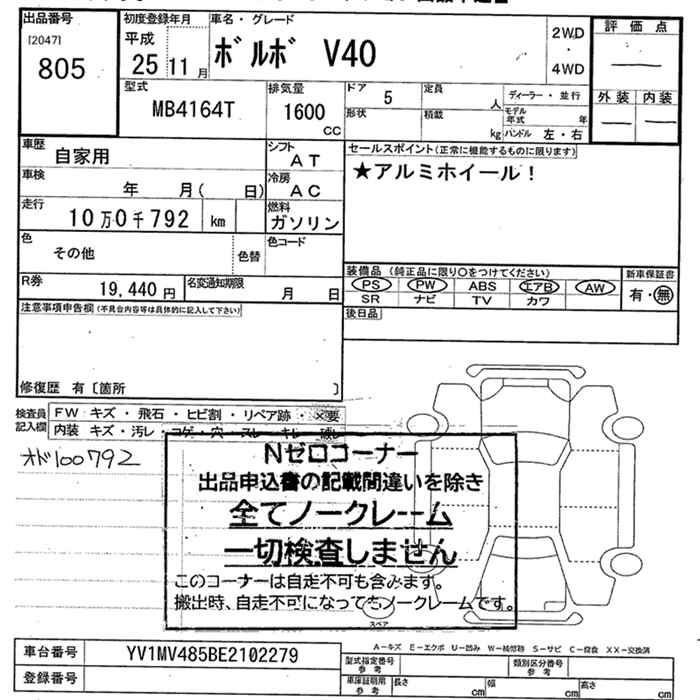 出品番号
[2047]
805
初度登録年月
平成
25 11 月
車名・グレード
ボルボ V40
2WD
・
4WD
評価点
外装 内装
型式
MB4164T
排気量
1600
CC
ドア 5
形状
定員 人
積載 kg
ディーラー・並行
モデル年式 年
ハンドル 左・右
車歴 自家用
シフト AT
車検 年 月( 日)
冷房 AC
走行 10万0千792 km
燃料 ガソリン
色 その他 色替
色コード
R券 19,440 円
名変通知期限 月 日
セールスポイント(正常に機能するものに限ります)
★アルミホイール!
装備品 (純正品に限り○をつけてください)
PS PW ABS エアB AW
SR ナビ TV カワ
新車保証書
有・無
後日品
注意事項申告欄(不具合内容等は具体的に記入して下さい)
修復歴 有〔箇所 〕
検査員記入欄
FW キズ・飛石・ヒビ割・リペア跡・X要
内装 キズ・汚レ・コゲ・穴・スレ・キレ・破レ
オド100792
Nゼロコーナー
出品申込書の記載間違いを除き
全てノークレーム
一切検査しません
このコーナーは自走不可も含みます。
搬出時、自走不可になってもノークレームです。
スペア
A-キズ E-エクボ U-凹み W-補修跡 S-サビ C-腐食 XX-交換済
車台番号 YV1MV485BE2102279
登録番号
型式指定番号参考
類別区分番号参考
車庫証明用参考
長さ cm 幅 cm 高さ cm